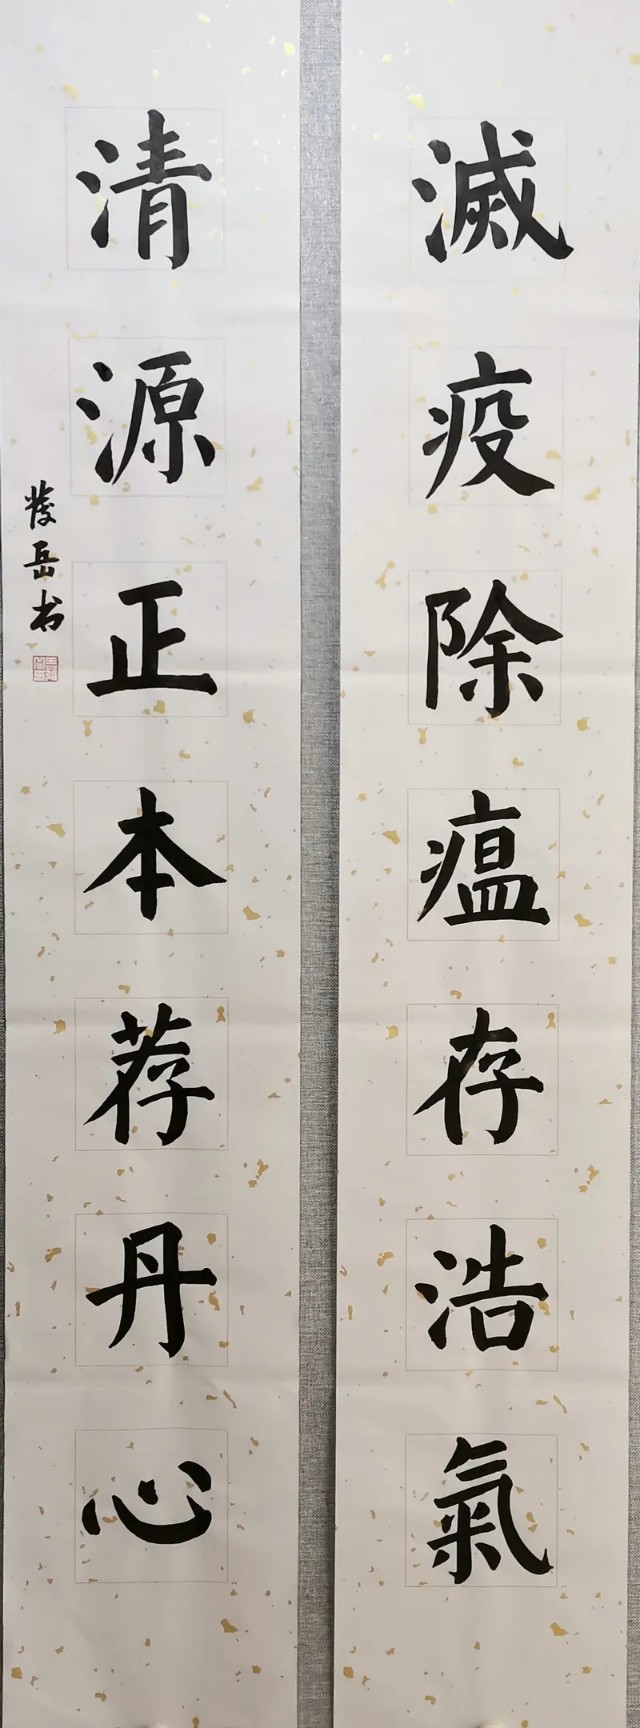 滅疫除瘟存浩氣
清源正本荐丹心
岳书